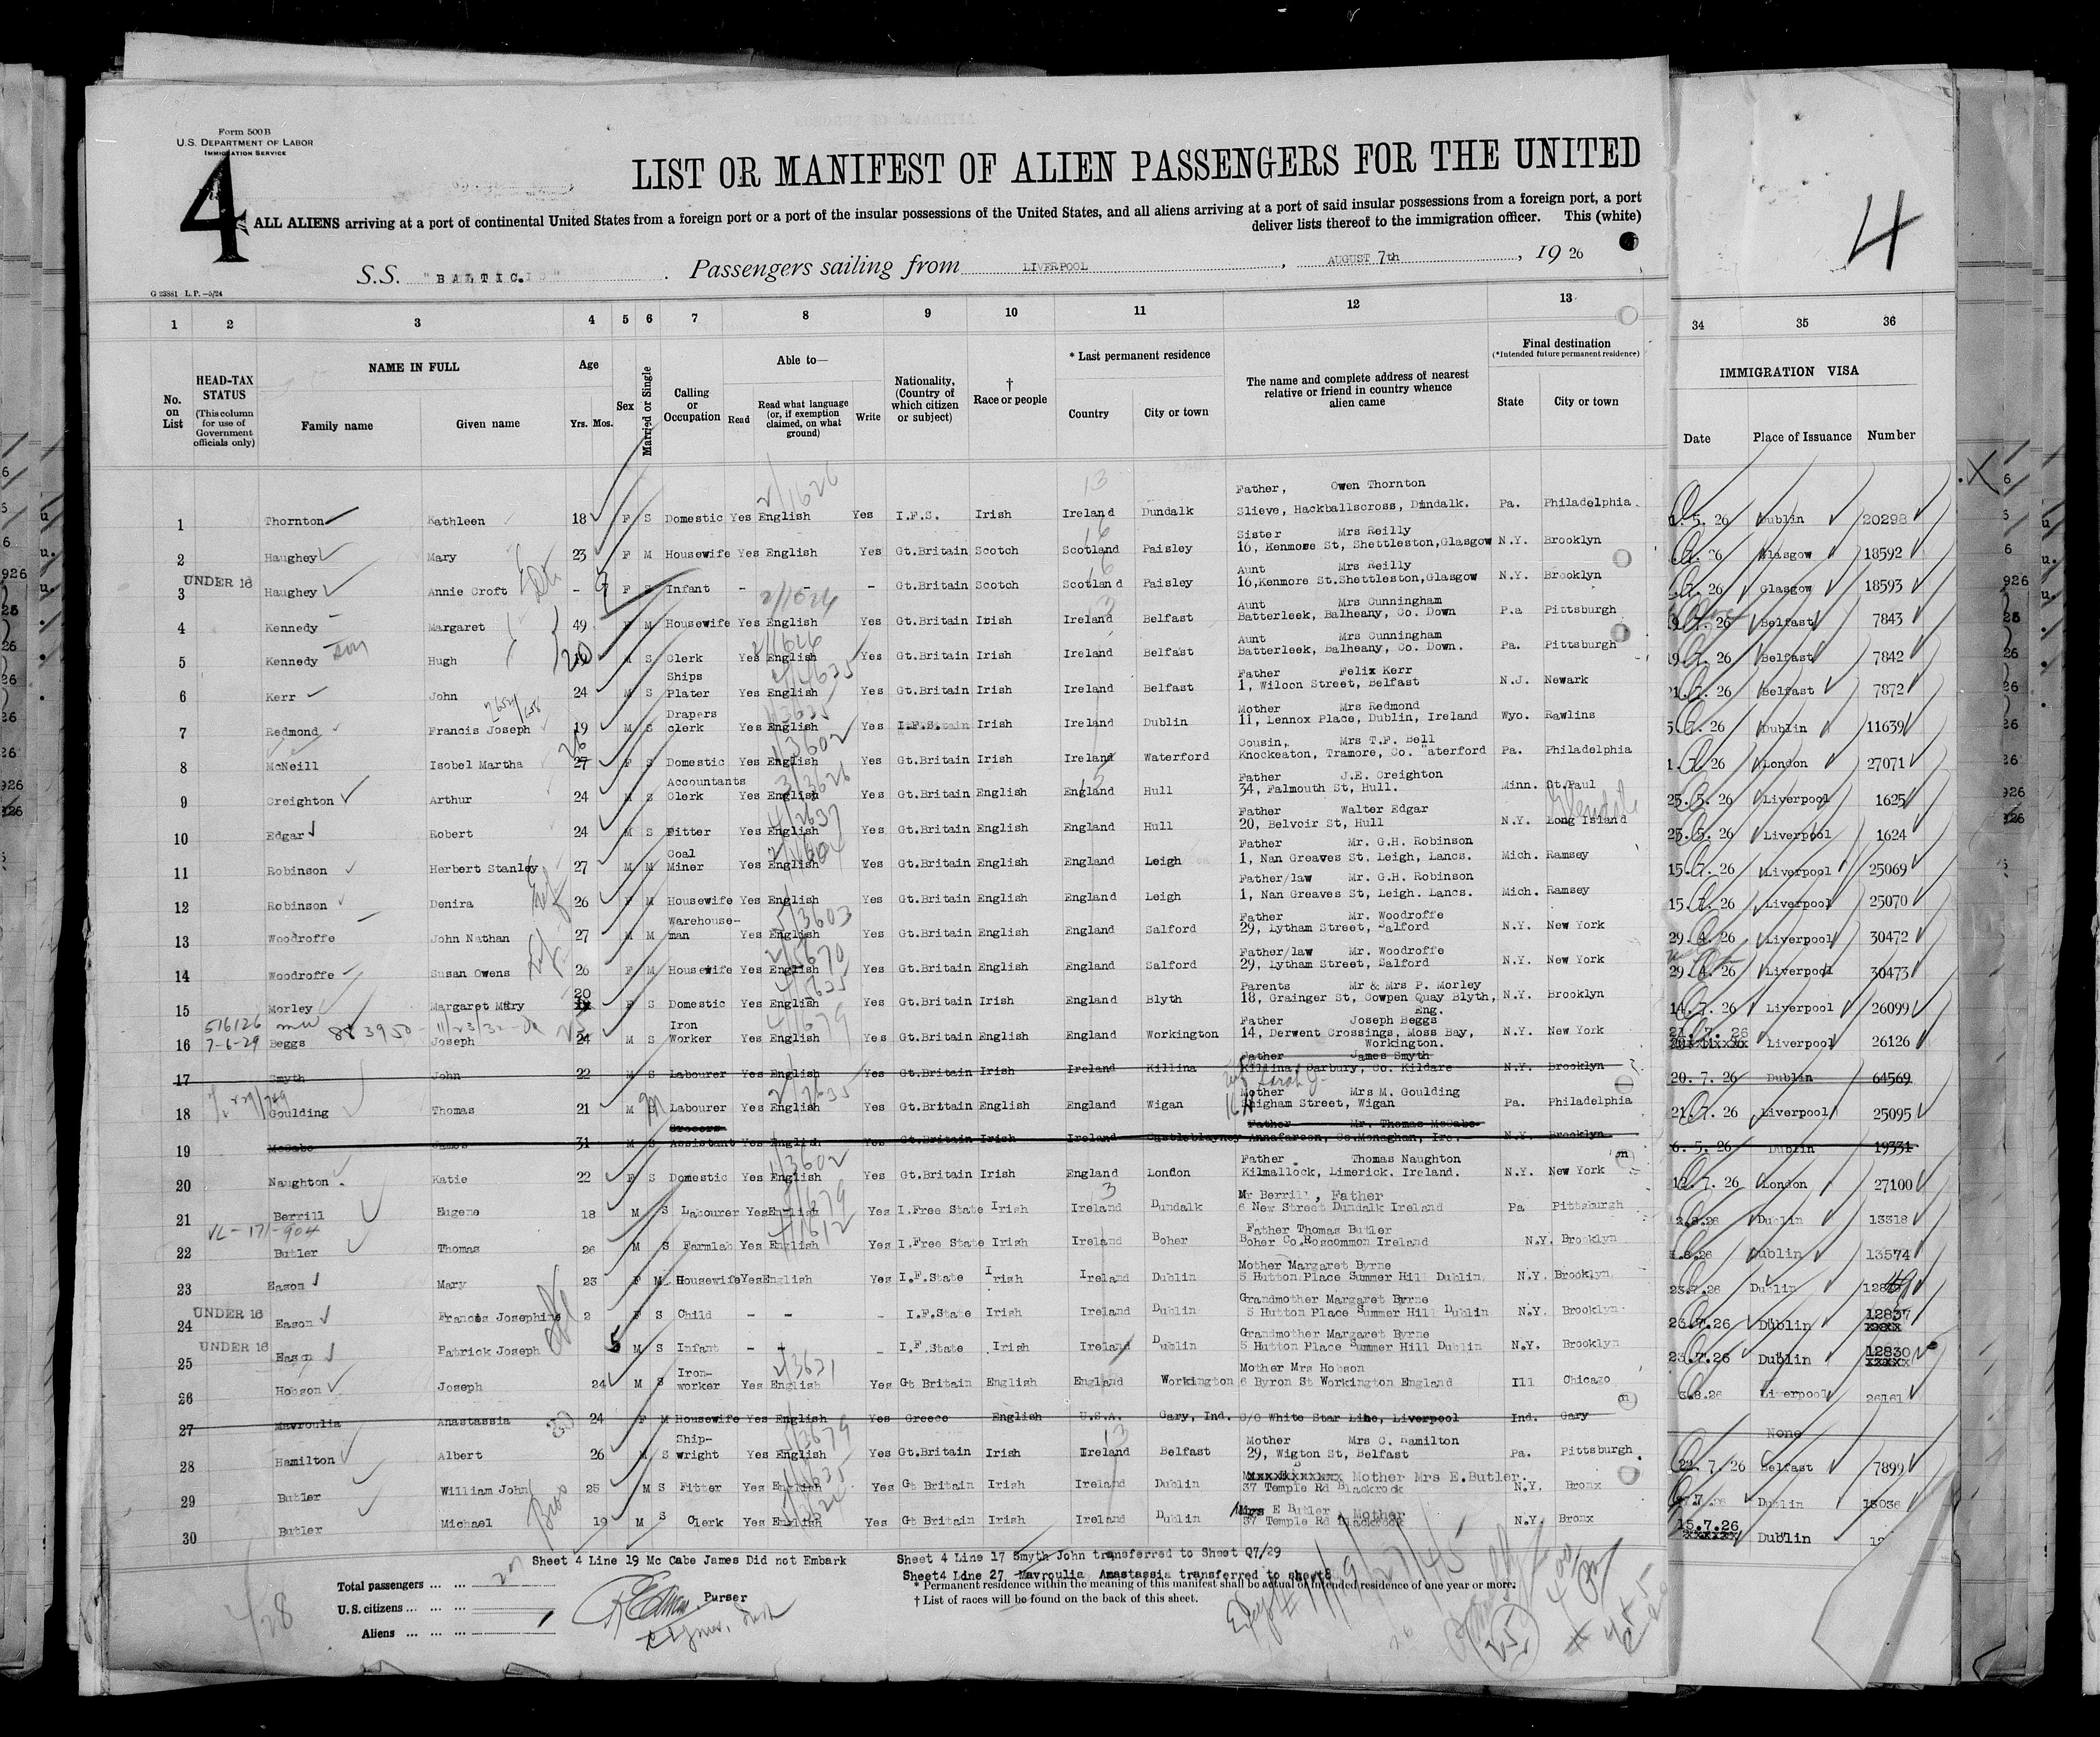 Form 500 B
U.S. DEPARTMENT OF LABOR
IMMIGRATION SERVICE
4
LIST OR MANIFEST OF ALIEN PASSENGERS FOR THE UNITED
ALL ALIENS arriving at a port of continental United States from a foreign port or a port of the insular possessions of the United States, and all aliens arriving at a port of said insular possessions from a foreign port, a port
deliver lists thereof to the immigration officer. This (white)
4
S.S. "BALTIC." Passengers sailing from LIVERPOOL, AUGUST 7th, 1926
G 23881 L.P.—5/24
1 2 3 4 5 6 7 8 9 10 11 12 13 34 35 36
No. on List
HEAD-TAX STATUS (This column for use of Government officials only)
NAME IN FULL
Family name Given name
Age Yrs. Mos.
Sex
Married or Single
Calling or Occupation
Able to—
Read Read what language (or, if exemption claimed, on what ground) Write
Nationality, (Country of which citizen or subject)
† Race or people
* Last permanent residence
Country City or town
The name and complete address of nearest relative or friend in country whence alien came
Final destination (*Intended future permanent residence)
State City or town
IMMIGRATION VISA
Date Place of Issuance Number
Father, Owen Thornton
1 Thornton Kathleen 18 F S Domestic Yes English Yes I.F.S. Irish Ireland Dundalk Slieve, Hackballscross, Dundalk. Pa. Philadelphia 5. 26 Dublin 20298
Sister Mrs Reilly
2 Haughey Mary 23 F M Housewife Yes English Yes Gt.Britain Scotch Scotland Paisley 16, Kenmore St, Shettleston, Glasgow N.Y. Brooklyn 26 Glasgow 18592
UNDER 16 Aunt Mrs Reilly
3 Haughey Annie Croft - 7 F S Infant - - - Gt.Britain Scotch Scotland Paisley 16, Kenmore St. Shettleston, Glasgow N.Y. Brooklyn 26 Glasgow 18593
Aunt Mrs Cunningham
4 Kennedy Margaret 49 F M Housewife Yes English Yes Gt.Britain Irish Ireland Belfast Batterleek, Balheany, Co. Down P.a Pittsburgh 26 Belfast 7843
Aunt Mrs Cunningham
5 Kennedy son Hugh 20 M S Clerk Yes English Yes Gt.Britain Irish Ireland Belfast Batterleek, Balheany, Co. Down. Pa. Pittsburgh 19.7.26 Belfast 7842
Ships Father Felix Kerr
6 Kerr John 24 M S Plater Yes English Yes Gt.Britain Irish Ireland Belfast 1, Wilson Street, Belfast N.J. Newark 21.7.26 Belfast 7872
Drapers Mother Mrs Redmond
7 Redmond Francis Joseph 19 M S clerk Yes English Yes I.F.S. Irish Ireland Dublin 11, Lennox Place, Dublin, Ireland Wyo. Rawlins 5.7.26 Dublin 11639
26 Cousin, Mrs T.F. Bell
8 McNeill Isobel Martha 27 F S Domestic Yes English Yes Gt.Britain Irish Ireland Waterford Knockeaton, Tramore, Co. Waterford Pa. Philadelphia 1.7.26 London 27071
Accountants Father J.E. Creighton
9 Creighton Arthur 24 M S Clerk Yes English Yes Gt.Britain English England Hull 34, Falmouth St, Hull. Minn. St.Paul 25.5.26 Liverpool 1625
Father Walter Edgar Glendale
10 Edgar Robert 24 M S Fitter Yes English Yes Gt.Britain English England Hull 20, Belvoir St, Hull N.Y. Long Island 25.5.26 Liverpool 1624
Coal Father Mr. G.H. Robinson
11 Robinson Herbert Stanley 27 M M Miner Yes English Yes Gt.Britain English England Leigh 1, Nan Greaves St, Leigh, Lancs. Mich. Ramsey 15.7.26 Liverpool 25069
Father/law Mr. G.H. Robinson
12 Robinson Denira 26 F M Housewife Yes English Yes Gt.Britain English England Leigh 1, Nan Greaves St, Leigh. Lancs. Mich. Ramsey 15.7.26 Liverpool 25070
Warehouse- Father Mr. Woodroffe
13 Woodroffe John Nathan 27 M M man Yes English Yes Gt.Britain English England Salford 29, Lytham Street, Salford N.Y. New York 29.4.26 Liverpool 30472
Father/law Mr. Woodroffe
14 Woodroffe Susan Owens 26 F M Housewife Yes English Yes Gt.Britain English England Salford 29, Lytham Street, Salford N.Y. New York 29.4.26 Liverpool 30473
20 Parents Mr & Mrs P. Morley
15 Morley Margaret Mary F S Domestic Yes English Yes Gt.Britain Irish England Blyth 18, Grainger St, Cowpen Quay Blyth, Eng. N.Y. Brooklyn 14.7.26 Liverpool 26099
516126 883950 - 11/23/32 Iron Father Joseph Beggs 21.7.26
16 7-6-29 Beggs Joseph 24 M S Worker Yes English Yes Gt.Britain English England Workington 14, Derwent Crossings, Moss Bay, Workington. N.Y. New York Liverpool 26126
Father James Smyth
17 Smyth John 22 M S Labourer Yes English Yes Gt.Britain Irish Ireland Killina Killina, Carbury, Co. Kildare N.Y. Brooklyn 20.7.26 Dublin 64569
Mother Mrs M. Goulding
18 Goulding Thomas 21 M Labourer Yes English Yes Gt.Britain English England Wigan Street, Wigan Pa. Philadelphia 21.7.26 Liverpool 25095
Grocers Father Mr. Thomas McCabe
19 McCabe James 31 M S Assistant Yes English Yes Gt.Britain Irish Ireland Castleblayney Annafarcon, Co.Monaghan, Ire. N.Y. Brooklyn 6.5.26 Dublin 19331
Father Thomas Naughton
20 Naughton Katie 22 F S Domestic Yes English Yes Gt.Britain Irish England London Kilmallock, Limerick. Ireland. N.Y. New York 12.7.26 London 27100
Mr Berrill, Father
21 Berrill Eugene 18 M S Labourer Yes English Yes I.Free State Irish Ireland Dundalk 6 New Street Dundalk Ireland Pa Pittsburgh 2.8.26 Dublin 13318
VL-171-904 Father Thomas Butler
22 Butler Thomas 26 M S Farmlab Yes English Yes I.Free State Irish Ireland Boher Boher Co.Roscommon Ireland N.Y. Brooklyn 8.26 Dublin 13574
Mother Margaret Byrne
23 Eason Mary 23 F M Housewife Yes English Yes I.F.State Irish Ireland Dublin 5 Hutton Place Summer Hill Dublin N.Y. Brooklyn 23.7.26 Dublin
UNDER 16 Grandmother Margaret Byrne
24 Eason Frances Josephine 2 F S Child - - - I.F.State Irish Ireland Dublin 5 Hutton Place Summer Hill Dublin N.Y. Brooklyn 23.7.26 Dublin 12837 xxxx
UNDER 16 Grandmother Margaret Byrne
25 Eason Patrick Joseph 5 M S Infant - - - I.F.State Irish Ireland Dublin 5 Hutton Place Summer Hill Dublin N.Y. Brooklyn 23.7.26 Dublin 12830 xxxxx
Iron- Mother Mrs Hobson
26 Hobson Joseph 24 M S worker Yes English Yes Gt Britain English England Workington 6 Byron St Workington England Ill Chicago 3.8.26 Liverpool 26161
27 Mavroulia Anastassia 24 F M Housewife Yes English Yes Greece English U.S.A. Gary, Ind. C/O White Star Line, Liverpool Ind. Gary None
Ship- Mother Mrs C. Hamilton
28 Hamilton Albert 26 M S wright Yes English Yes Gt.Britain Irish Ireland Belfast 29, Wigton St, Belfast Pa. Pittsburgh 22.7.26 Belfast 7899
Mother Mrs E.Butler.
29 Butler William John 25 M S Fitter Yes English Yes Gt Britain Irish Ireland Dublin 37 Temple Rd Blackrock N.Y. Bronx Dublin 13036
Bros Mrs E Butler Mother 15.7.26
30 Butler Michael 19 M S Clerk Yes English Yes Gt Britain Irish Ireland Dublin 37 Temple Rd Blackrock N.Y. Bronx xxxxxx Dublin
Sheet 4 Line 19 Mc Cabe James Did not Embark Sheet 4 Line 17 Smyth John transferred to Sheet Q7/29
Sheet4 Line 27 Mavroulia Anastassia transferred to sheet8
Total passengers ... ...
U.S. citizens ... ... ...
Aliens ... ... ...
Purser
* Permanent residence within the meaning of this manifest shall be actual or intended residence of one year or more.
† List of races will be found on the back of this sheet.